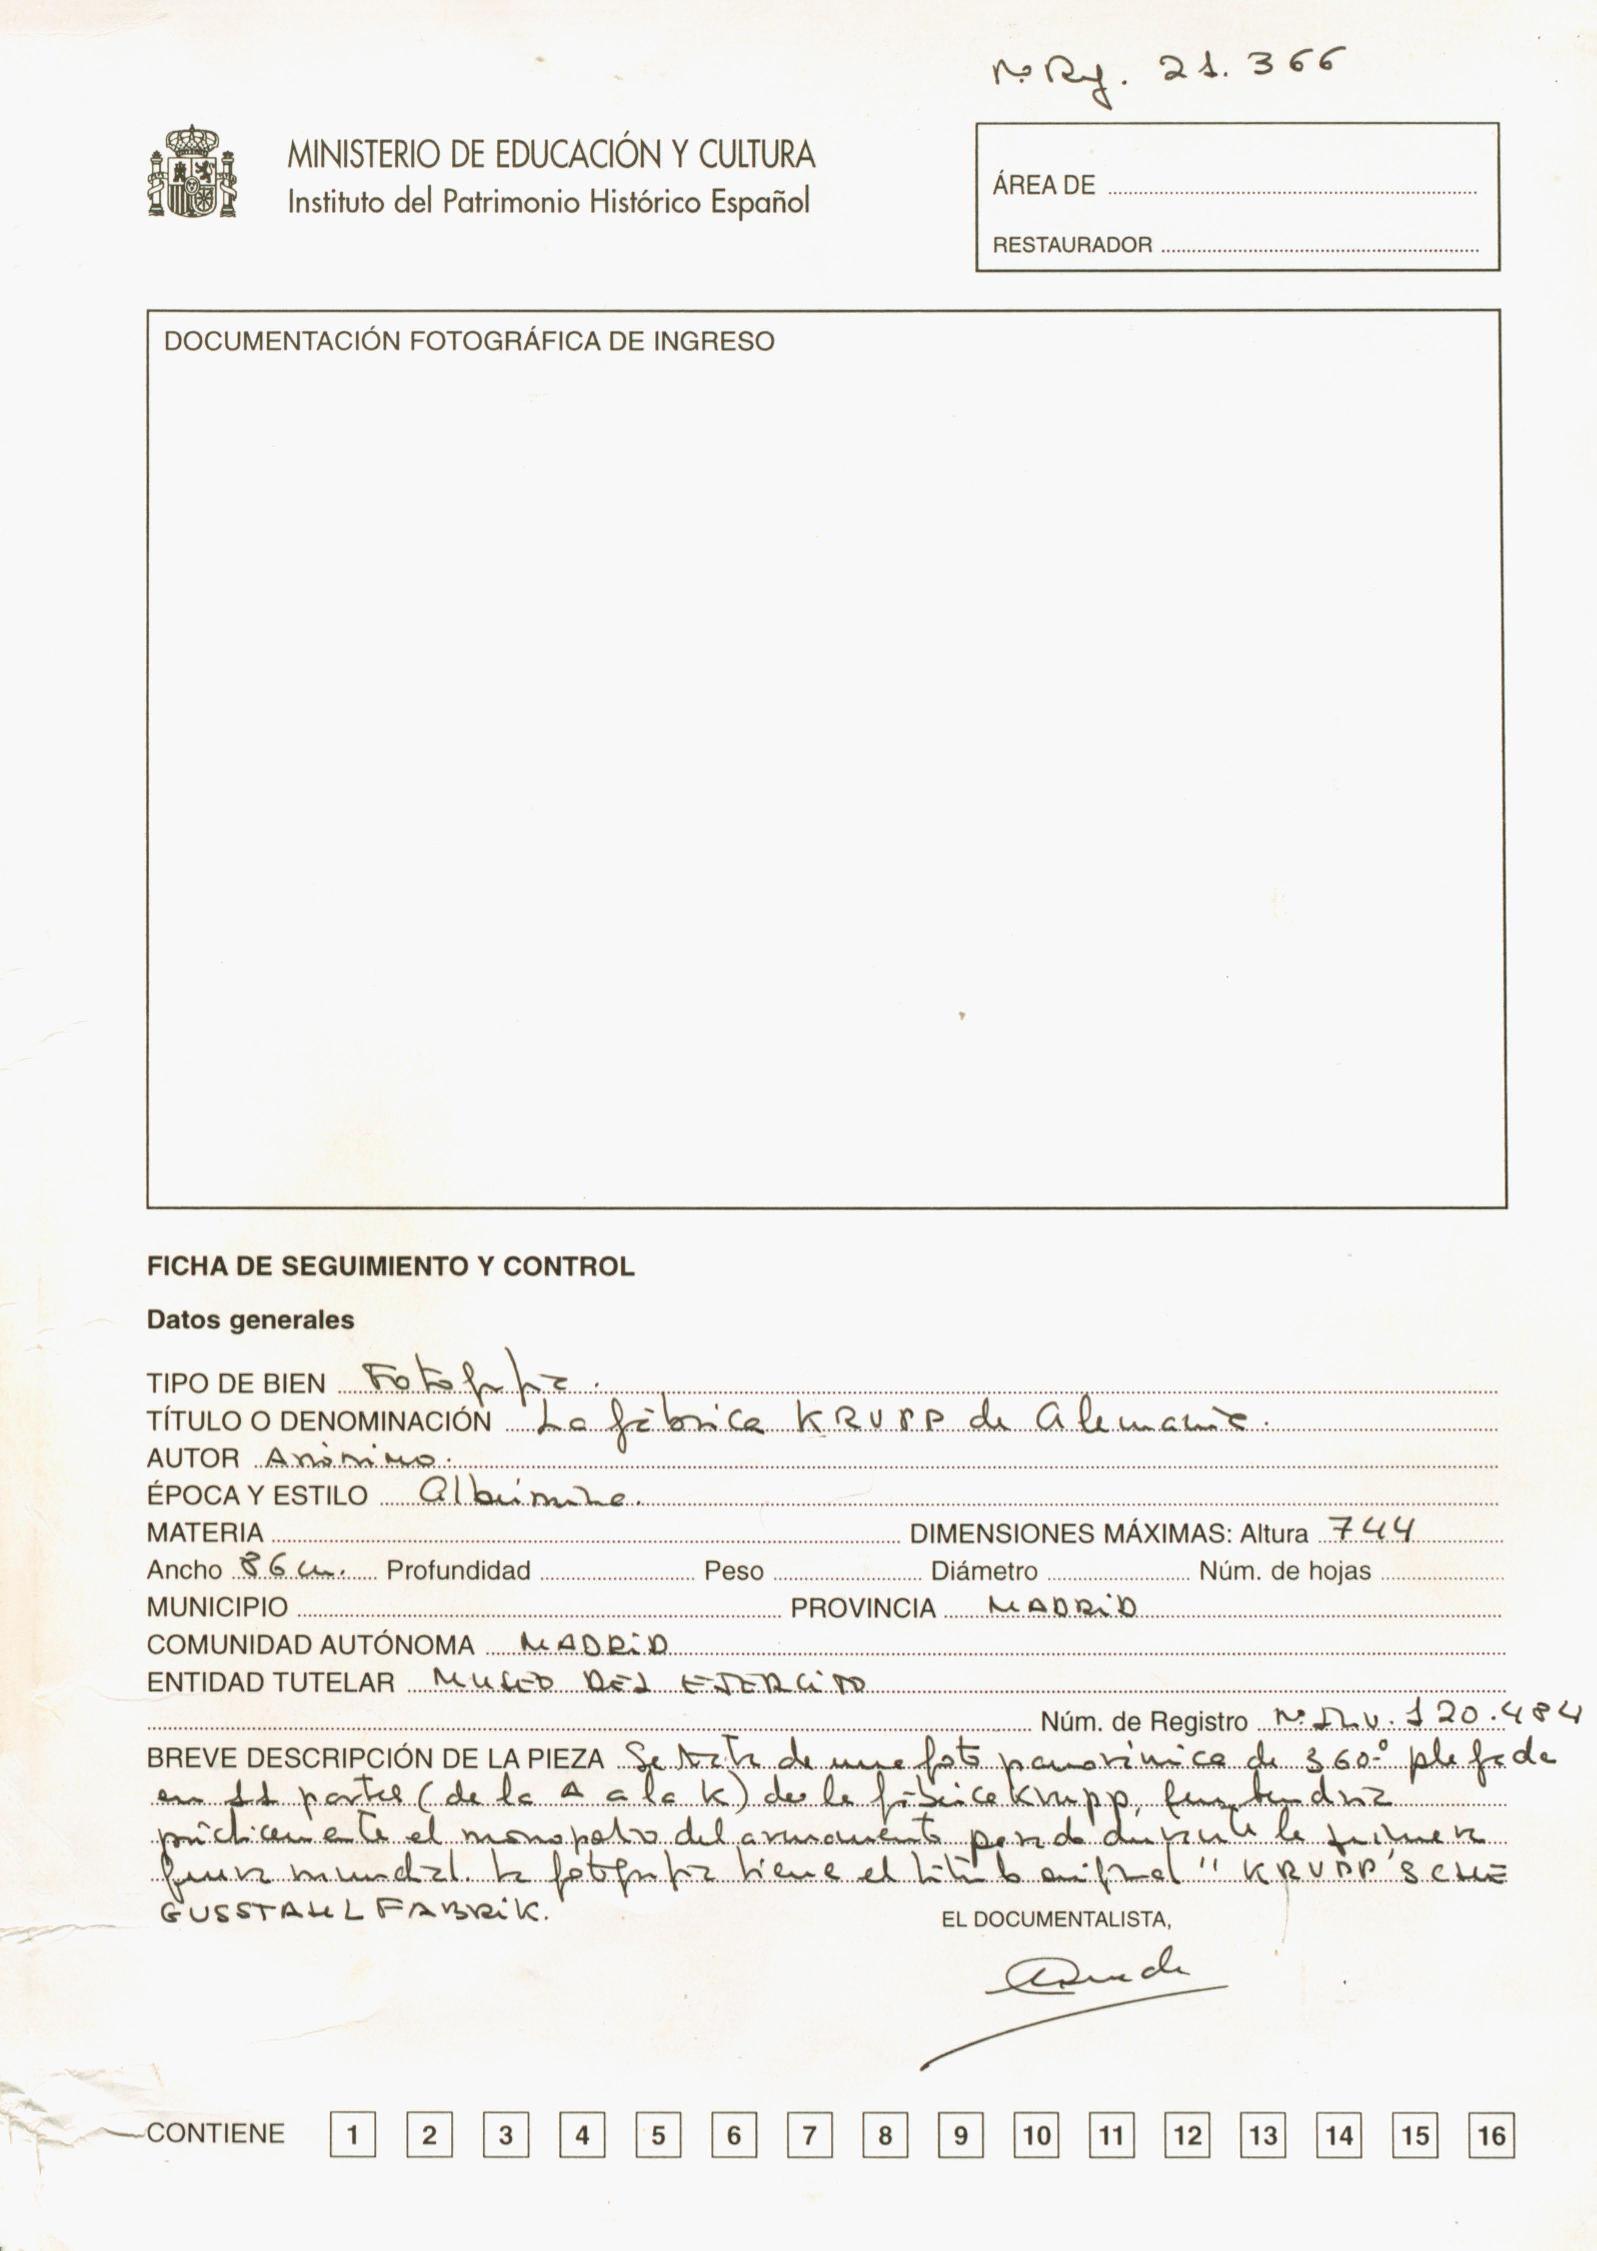 Nº Rg. 21.366
MINISTERIO DE EDUCACIÓN Y CULTURA
Instituto del Patrimonio Histórico Español
ÁREA DE
RESTAURADOR
DOCUMENTACIÓN FOTOGRÁFICA DE INGRESO
FICHA DE SEGUIMIENTO Y CONTROL
Datos generales
TIPO DE BIEN Fotografía.
TÍTULO O DENOMINACIÓN La fábrica KRUPP de Alemania.
AUTOR Anónimo.
ÉPOCA Y ESTILO Albúmina.
MATERIA DIMENSIONES MÁXIMAS: Altura 744
Ancho 86 cm. Profundidad Peso Diámetro Núm. de hojas
MUNICIPIO PROVINCIA MADRID
COMUNIDAD AUTÓNOMA MADRID
ENTIDAD TUTELAR MUSEO DEL EJERCITO
Núm. de Registro Nº Inv. 120.484
BREVE DESCRIPCIÓN DE LA PIEZA Se trata de una foto panorámica de 360º plegada
en 11 partes (de la A a la K) de la fábrica Krupp, que tendría
prácticamente el monopolio del armamento pesado durante la primera
guerra mundial. La fotografía tiene el título original "KRUPP'SCHE
GUSSTAHLFABRIK.
EL DOCUMENTALISTA,
CONTIENE 1 2 3 4 5 6 7 8 9 10 11 12 13 14 15 16